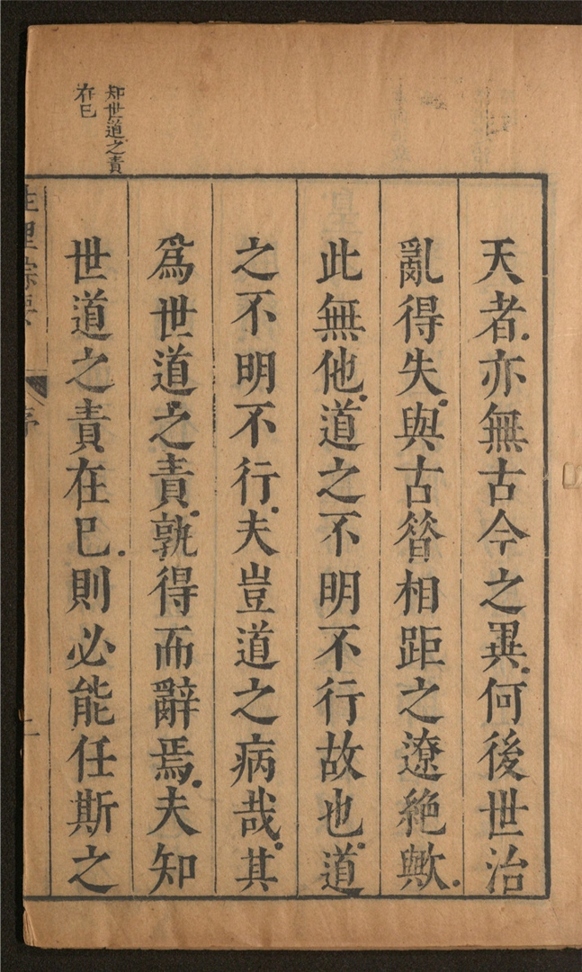 知世道之責
在巳
天者亦無古今之異何後世治
亂得失與古昝相距之遼絶歟
此無他道之不明不行故也道
之不明不行夫豈道之病哉其
爲世道之責孰得而辭焉夫知
世道之責在巳則必能任斯之
序
二